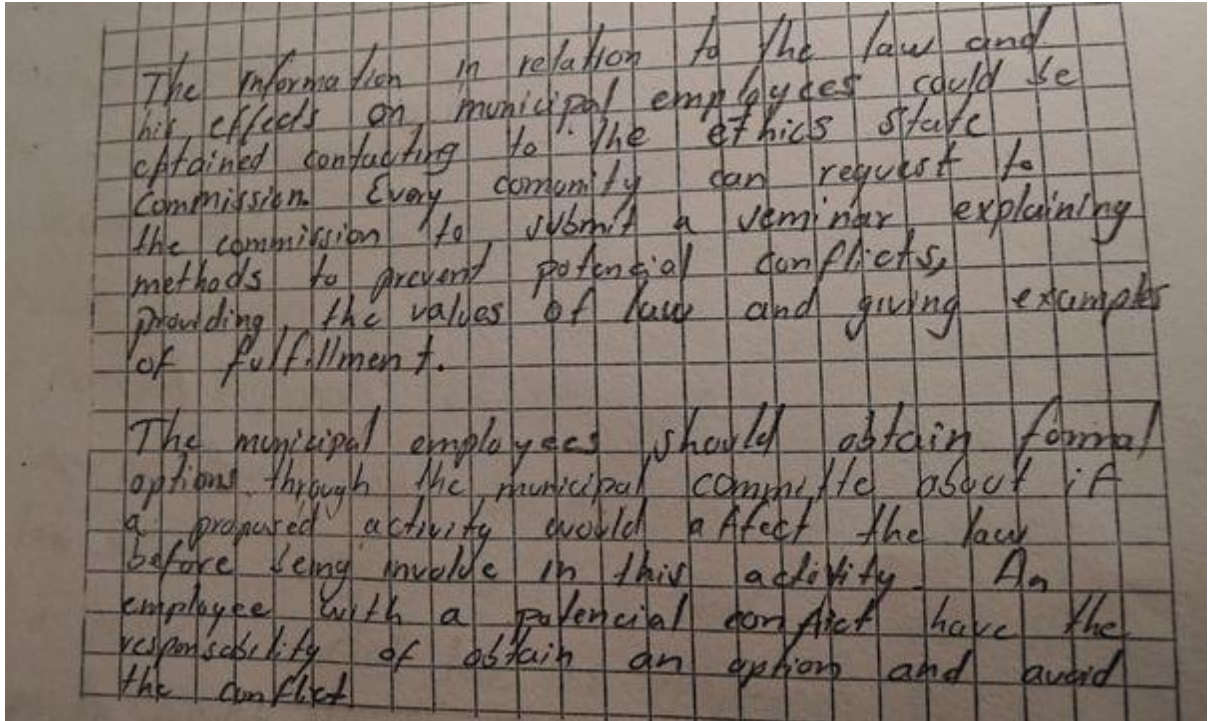 The information in relation to the law and
his effects on municipal employees could be
obtained contacting to the ethics state
commission. Every comunity can request to
the commission to submit a seminar explaining
methods to prevent potencial conflicts,
providing the values of law and giving examples
of fulfillment.
The municipal employees should obtain formal
options through the municipal committe about if
a proposed activity would affect the law
before being involve in this activity. An
employee with a potencial conflict have the
responsability of obtain an option and avoid
the conflict